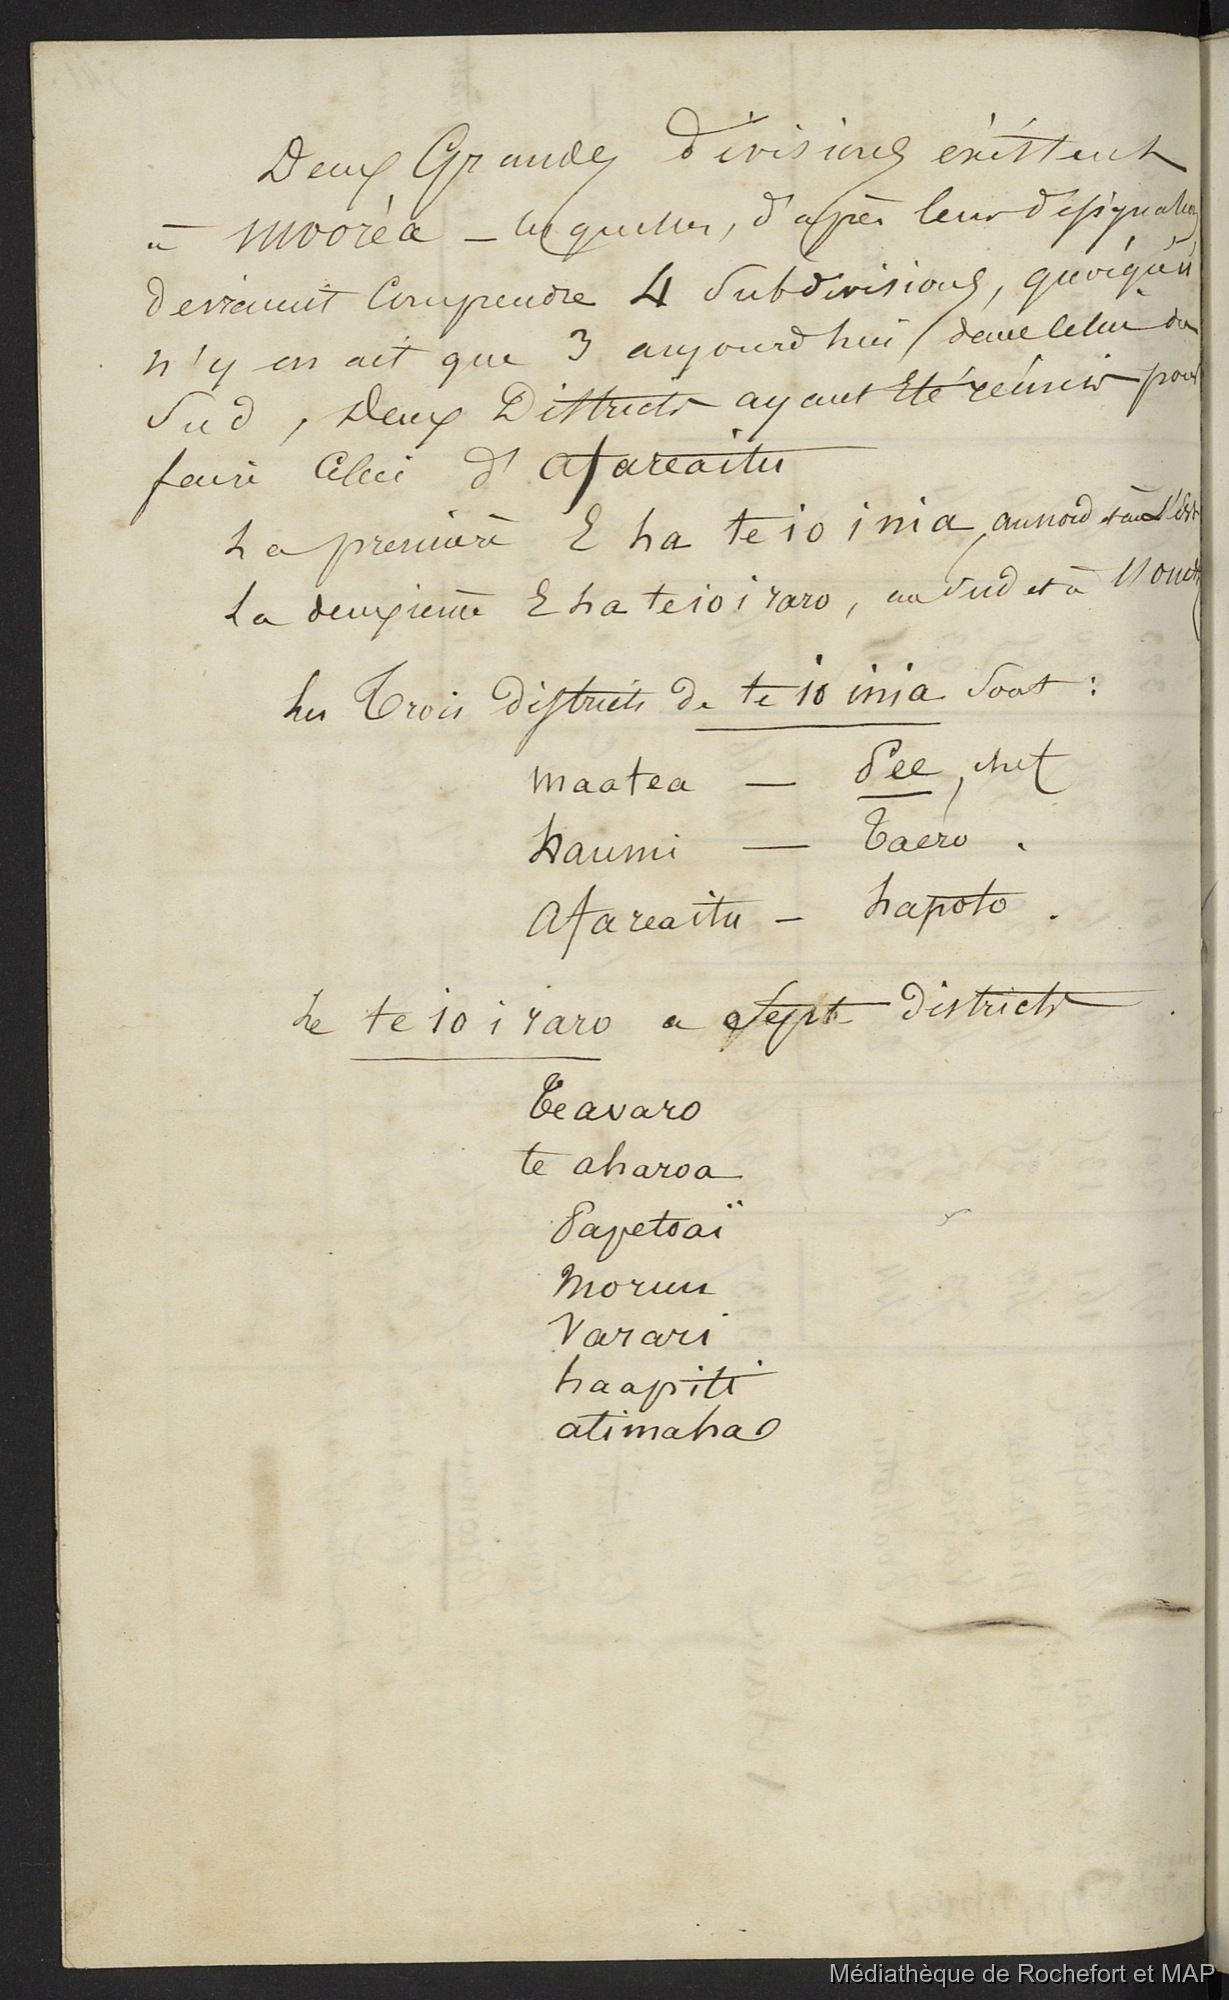 Deux Grandes divisions éxistent
à mooréa – lesquelles, d'après leur désignation
devraient Comprendre 4 Subdivisions, quoiqu'il
n'y en ait que 3 aujourd'hui dans celui du
Sud, Deux Districts ayant Eté réunis pour
faire Celui d'Afareaitu
La première E ha te io i nia, au nord et à l'Est
La deuxième E ha te io i raro, au Sud et à l'ouest
Les Trois districts de te io i nia sont :
maatea — Pee, chef
haumi — Taero .
Afareaitu – hapoto .
Le te io i raro a Sept districts
Teavaro
te aharoa
Papetoaï
Moruu
Varari
haapiti
atimaha
Médiathèque de Rochefort et MAP